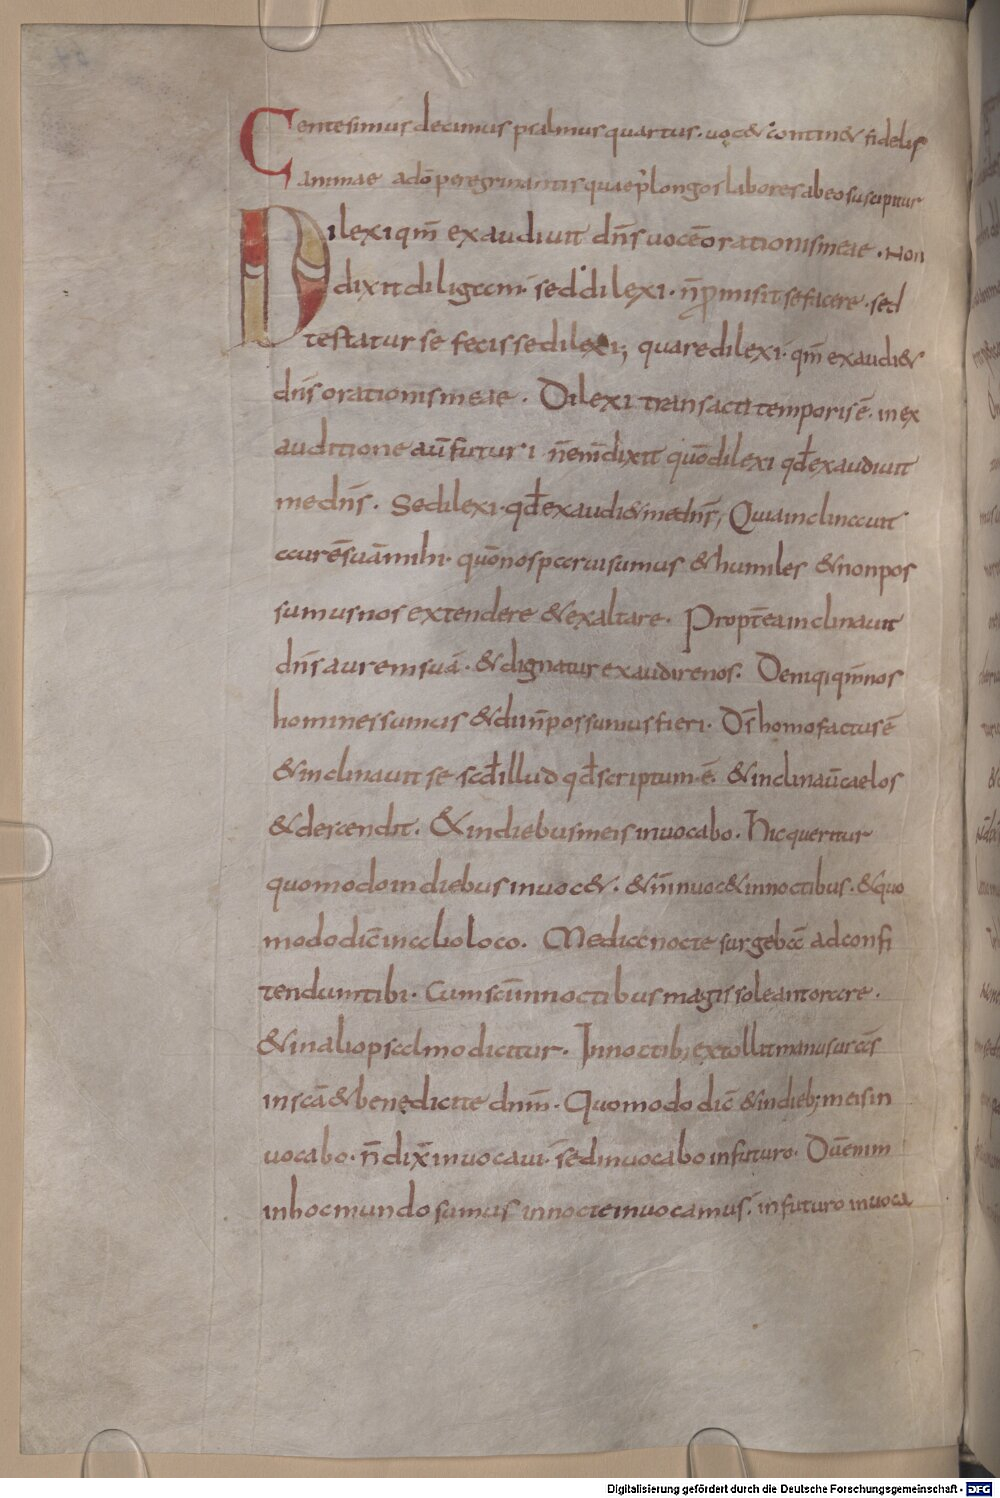 Centesimus decimus psalmus quartus. uoc& contin& fidelis
animae ad dō peregrinantis quae p̄ longos labores ab eo suscipitur
Dilexi qm̄ exaudiuit dn̄s uocē orationis meae. Non
dixit diligam. sed dilexi. n̄ promisit se facere. sed
testatur se fecisse dilexi; quare dilexi. qm̄ exaudi&
dn̄s orationis meae. Dilexi transacti temporis ē. in ex
auditione aūt futuri n̄ enim dixit quō dilexi qd̄ exaudiuit
me dn̄s. Sed dilexi. qd̄ exaudi& me dn̄s; Quia inclinauit
aurē suā mihi. quō nos parui sumus & humiles & non pos
sumus nos extendere & exaltare. Propt̄ea inclinauit
dn̄s aurem suā. & dignatur exaudire nos. Deniq; qm̄ nos
homines sumus & dii n̄ possumus fieri. Ds̄ homo factus ē
& inclinauit se scd̄ illud qd̄ scriptum ē. & inclinaū caelos
& descendit. & in diebus meis inuocabo. Hic queritur
quomodo in diebus inuoc&. & n̄ inuoc& in noctibus. & quo
modo dic̄ in alio loco. Media nocte surgebā ad confi
tendum tibi. Cum scī in noctibus magis soleant orare.
& in alio psalmo dicitur. In noctib; extollit manus uras
in scā & benedicite dnm̄. Quomodo dic̄ & in dieb; meis in
uocabo. n̄ dix̄ inuocaui. sed inuocabo in futuro. Dū enim
in hoc mundo sumus in nocte inuocamus. in futuro inuoca
Digitalisierung gefördert durch die Deutsche Forschungsgemeinschaft - DFG